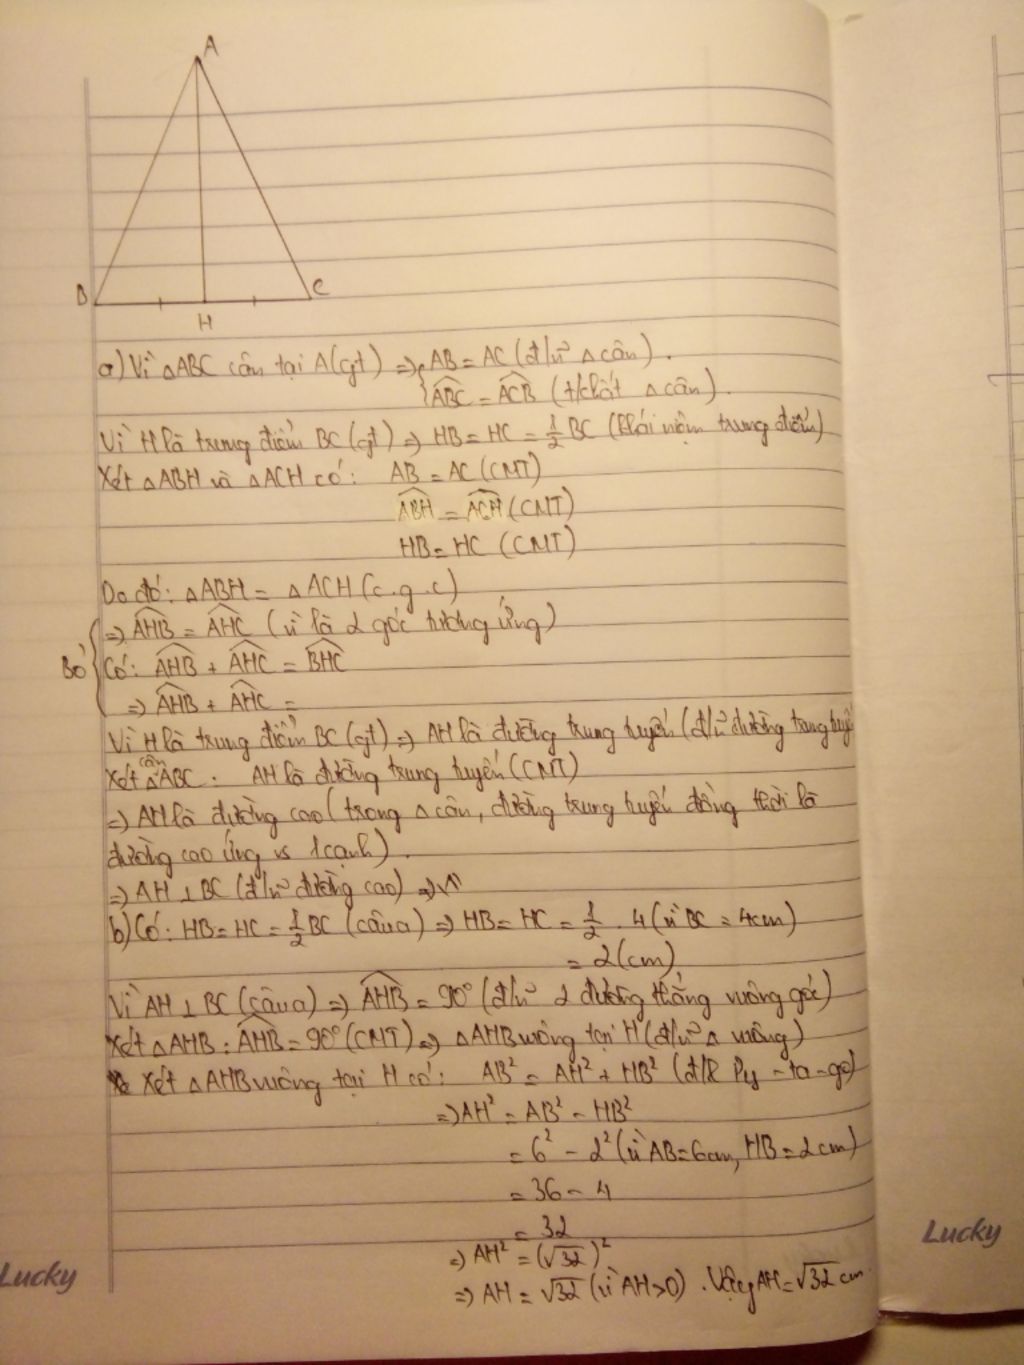 A
B
C
H
a) Vì △ABC cân tại A (gt) ⇒ { AB = AC (đ/n △ cân).
ABC = ACB (t/chất △ cân).
Vì H là trung điểm BC (gt) ⇒ HB = HC = 1/2 BC (khái niệm trung điểm)
Xét △ABH và △ACH có: AB = AC (CMT)
ABH = ACH (CMT)
HB = HC (CMT)
Do đó: △ABH = △ACH (c.g.c)
⇒ AHB = AHC (vì là 2 góc tương ứng)
Bỏ { Có: AHB + AHC = BHC
⇒ AHB + AHC =
Vì H là trung điểm BC (gt) ⇒ AH là đường trung tuyến (đ/n đường trung tuyế
Xét △cân ABC: AH là đường trung tuyến (CMT)
⇒ AH là đường cao (trong △ cân, đường trung tuyến đồng thời là
đường cao ứng vs 1 cạnh).
⇒ AH ⊥ BC (đ/n đường cao) ⇒
b) Có: HB = HC = 1/2 BC (câu a) ⇒ HB = HC = 1/2 . 4 (vì BC = 4cm)
= 2 (cm)
Vì AH ⊥ BC (câu a) ⇒ AHB = 90° (đ/n 2 đường thẳng vuông góc)
Xét △AHB: AHB = 90° (CMT) ⇒ △AHB vuông tại H (đ/n △ vuông)
Xét △AHB vuông tại H có: AB² = AH² + HB² (đ/l Py-ta-go)
⇒ AH² = AB² - HB²
= 6² - 2² (vì AB = 6cm, HB = 2cm)
= 36 - 4
= 32
⇒ AH² = (√32)²
⇒ AH = √32 (vì AH > 0). Vậy AH = √32 cm.
Lucky
Lucky